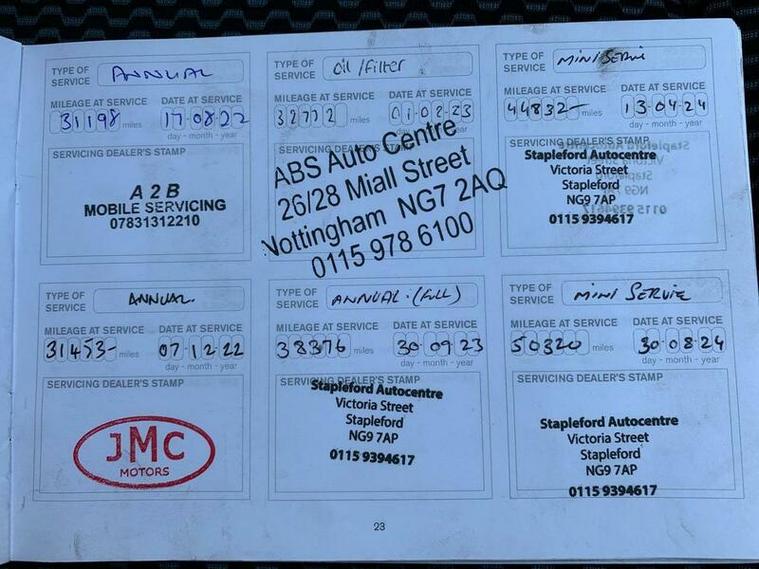 TYPE OF SERVICE ANNUAL
MILEAGE AT SERVICE DATE AT SERVICE
31198 miles 17 08 22
day - month - year
SERVICING DEALER'S STAMP
A 2 B
MOBILE SERVICING
07831312210
TYPE OF SERVICE Oil / Filter
MILEAGE AT SERVICE DATE AT SERVICE
32772 miles 01 08 23
SERVICING DEALER'S STAMP
ABS Auto Centre
26/28 Miall Street
Nottingham NG7 2AQ
0115 978 6100
TYPE OF SERVICE MINI
MILEAGE AT SERVICE DATE AT SERVICE
44832- miles 13 04 24
day - month - year
SERVICING DEALER'S STAMP
Stapleford Autocentre
Victoria Street
Stapleford
NG9 7AP
0115 9394617
TYPE OF SERVICE ANNUAL.
MILEAGE AT SERVICE DATE AT SERVICE
31453- miles 07 12 22
day - month - year
SERVICING DEALER'S STAMP
JMC
MOTORS
TYPE OF SERVICE ANNUAL. (FULL)
MILEAGE AT SERVICE DATE AT SERVICE
38376 miles 30 09 23
day - month - year
SERVICING DEALER'S STAMP
Stapleford Autocentre
Victoria Street
Stapleford
NG9 7AP
0115 9394617
TYPE OF SERVICE MINI SERVIE
MILEAGE AT SERVICE DATE AT SERVICE
50320 miles 30 08 24
day - month - year
SERVICING DEALER'S STAMP
Stapleford Autocentre
Victoria Street
Stapleford
NG9 7AP
0115 9394617
23